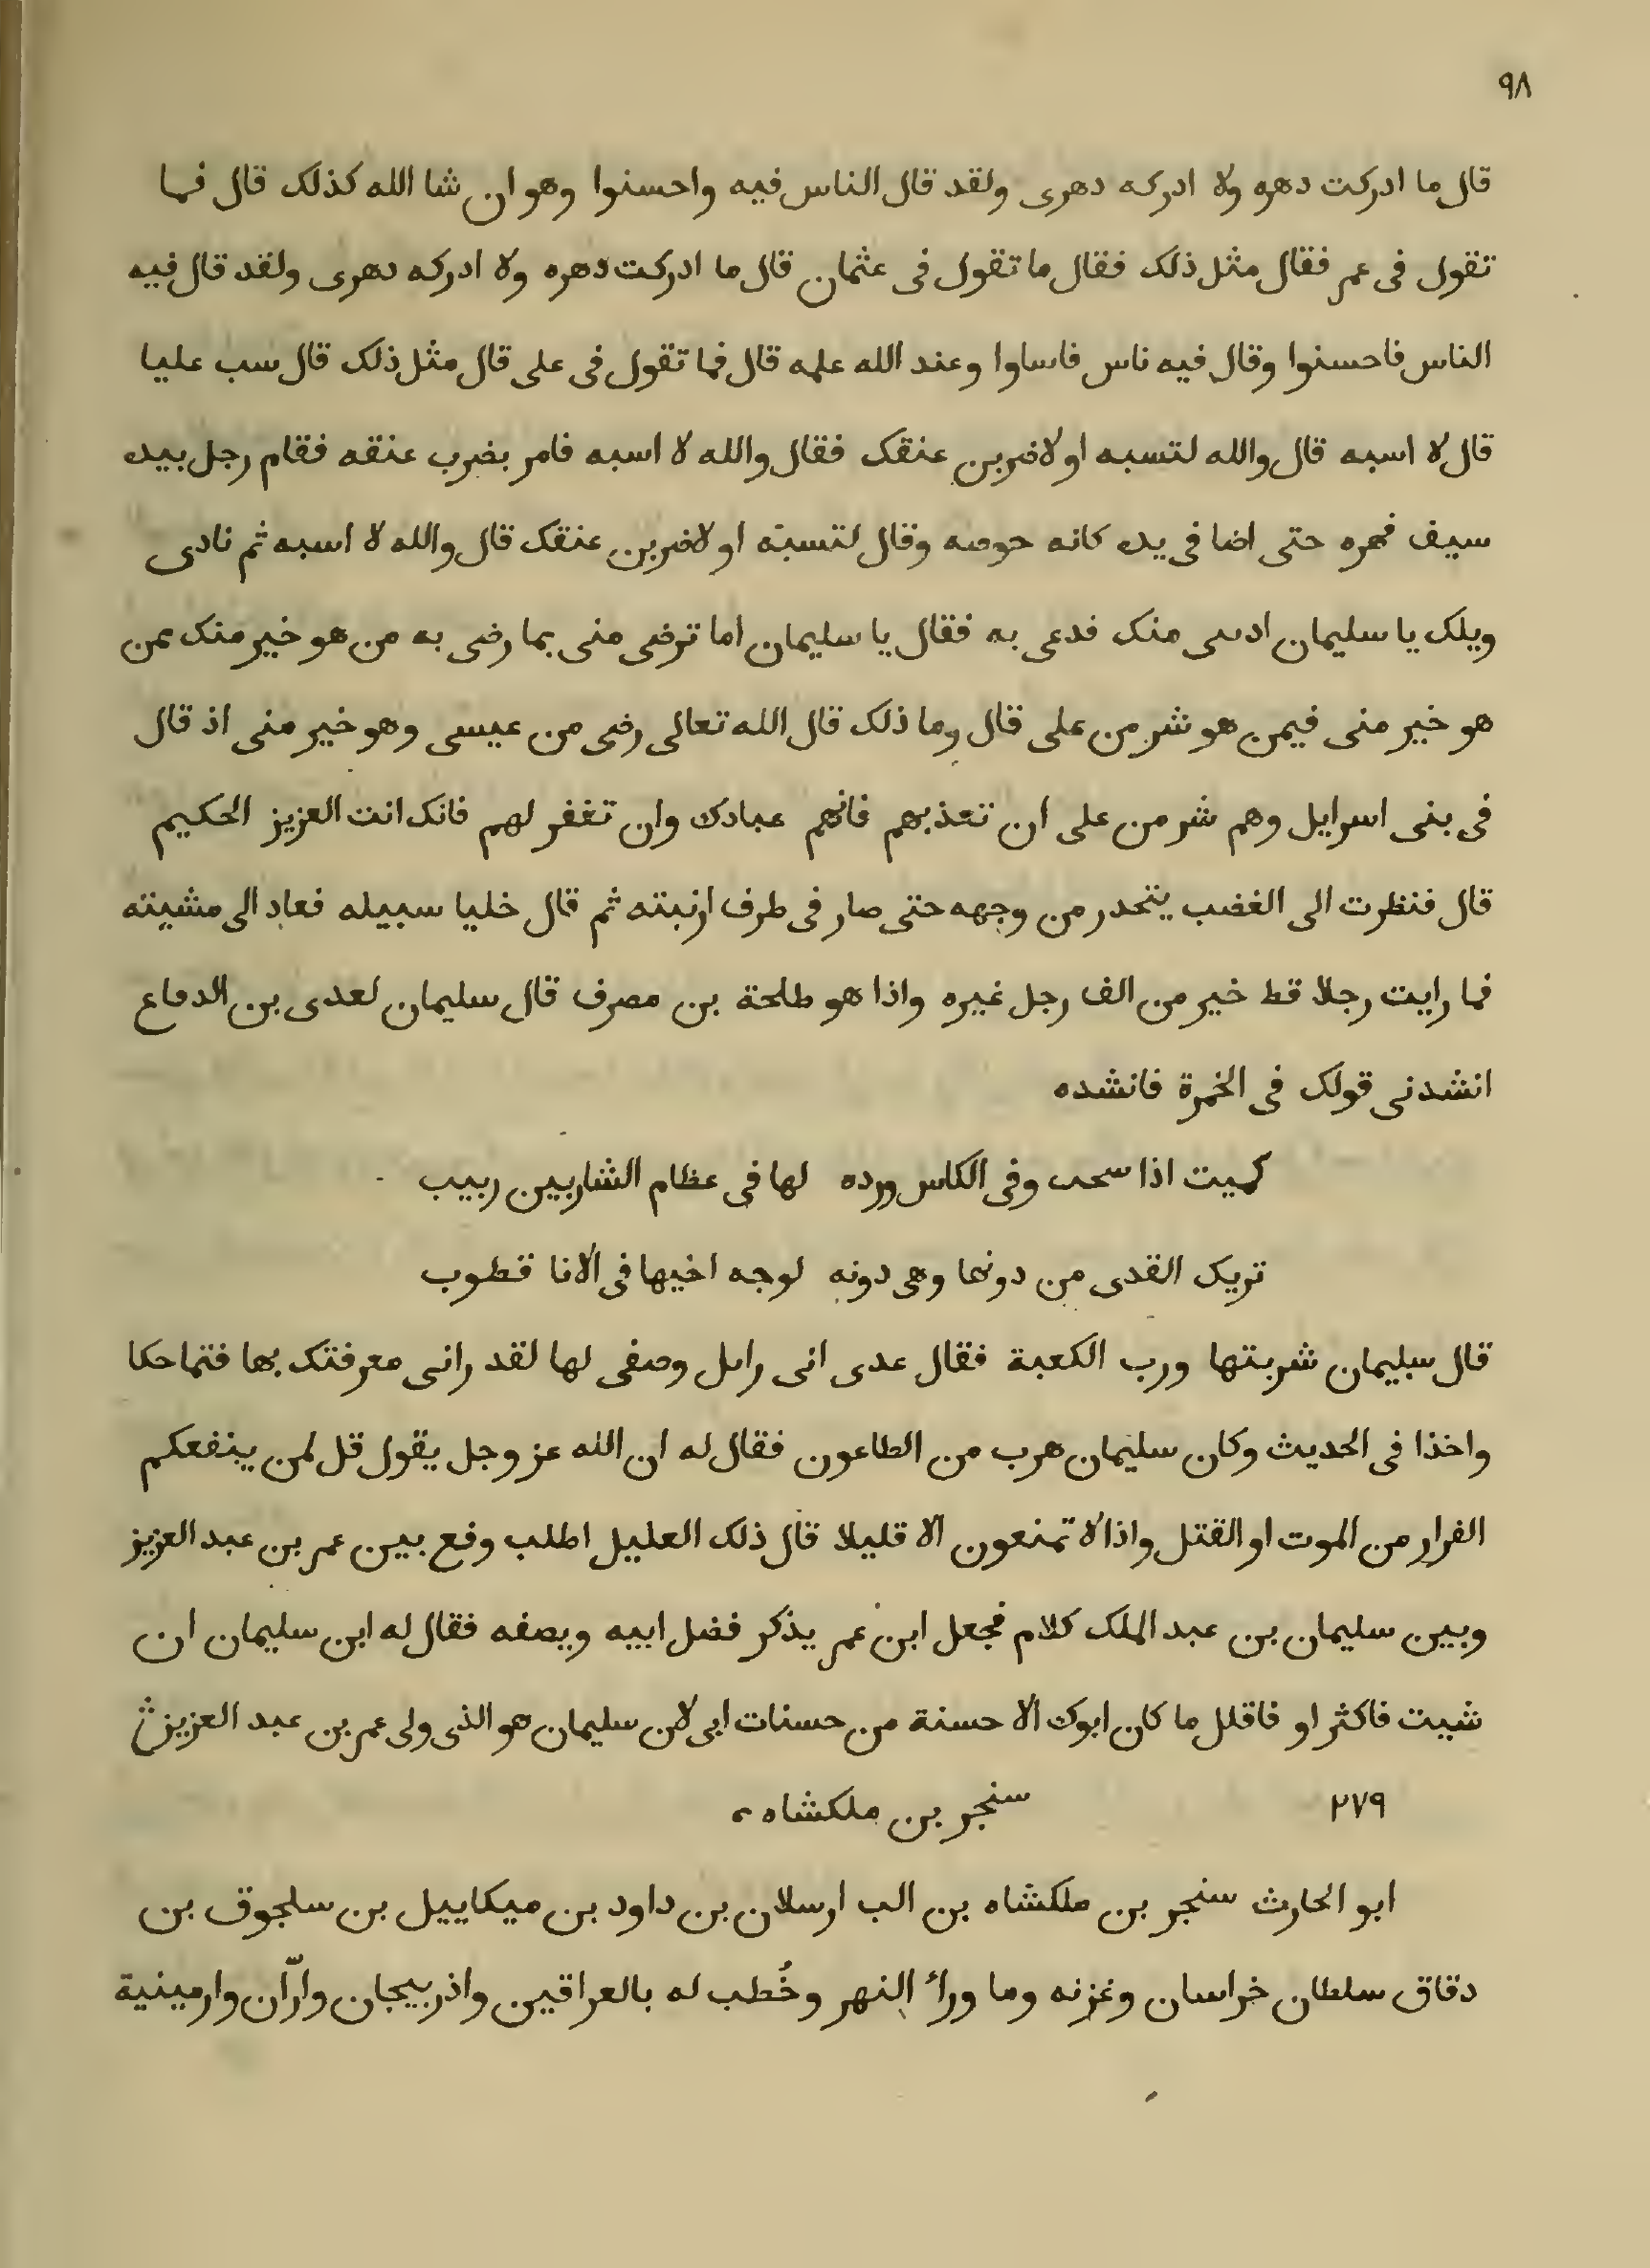 ٩٨
قال ما ادركت دهره ولا ادركه دهرى ولقد قال الناس فيه واحسنوا وهو ان شا الله كذلك قال فما
تقول فى عمر فقال مثل ذلك فقال ما تقول فى عثمان قال ما ادركت دهره ولا ادركه دهرى ولقد قال فيه
الناس فاحسنوا وقال فيه ناس فاساوا وعند الله علمه قال فما تقول فى على قال مثل ذلك قال سب عليا
قال لا اسبه قال والله لتسبه او لاضربن عنقك فقال والله لا اسبه فامر بضرب عنقه فقام رجل بيده
سيف فهزه حتى اضا فى يده كانه خوصه وقال لتسبنه او لاضربن عنقك قال والله لا اسبه ثم نادى
ويلك يا سليمان منك فدعى به فقال يا سليمان اما ترضى منى بما رضى به من هو خير منك عمن
هو خير منى فيمن هو شر من على قال وما ذلك قال الله تعالى رضى من عيسى وهو خير منى اذ قال
فى بنى اسرايل وهم شر من على ان تعذبهم فانهم عبادك وان تغفر لهم فانك انت العزيز الحكيم
قال فنظرت الى الغضب يتحدر من وجهه حتى صار فى طرف ارنبته ثم قال خليا سبيله فعاد الى مشيته
فما رايت رجلا قط خير من الف رجل غيره واذا هو طلحة بن مصرف قال سليمان لعدى بن الدماع
انشدنى قولك فى الخمرة فانشده
كميت اذا وفى الكاس ورده لها فى عظام الشاربين ربيب
تريك القدى من دونها وهى دونه لوجه اخيها فى الانا قطوب
قال سليمان شربتها ورب الكعبة فقال عدى انى وصفى لها لقد رانى معرفتك بها فتماحكا
واخذا فى الحديث وكان سليمان هرب من الطاعون فقال له ان الله عز وجل يقول قل لمن ينفعكم
الفرار من الموت او القتل واذا لا تمنعون الا قليلا قال ذلك العليل اطلب وقع بين عمر بن عبد العزيز
وبين سليمان بن عبد الملك كلام فجعل ابن عمر يذكر فضل ابيه ويصفه فقال له ابن سليمان ان
شيت فاكثر او فاقلل ما كان ابوك الا حسنة من حسنات ابى لان سليمان هو الذى ولى عمر بن عبد العزيز
٢٧٩ سنجر بن ملكشاه
ابو الحارث سنجر بن ملكشاه بن الب ارسلان بن داود بن ميكاييل بن سلجوق بن
دقاق سلطان خراسان وغزنه وما وراء النهر وخُطب له بالعراقين واذربيجان وارّان وارمينية